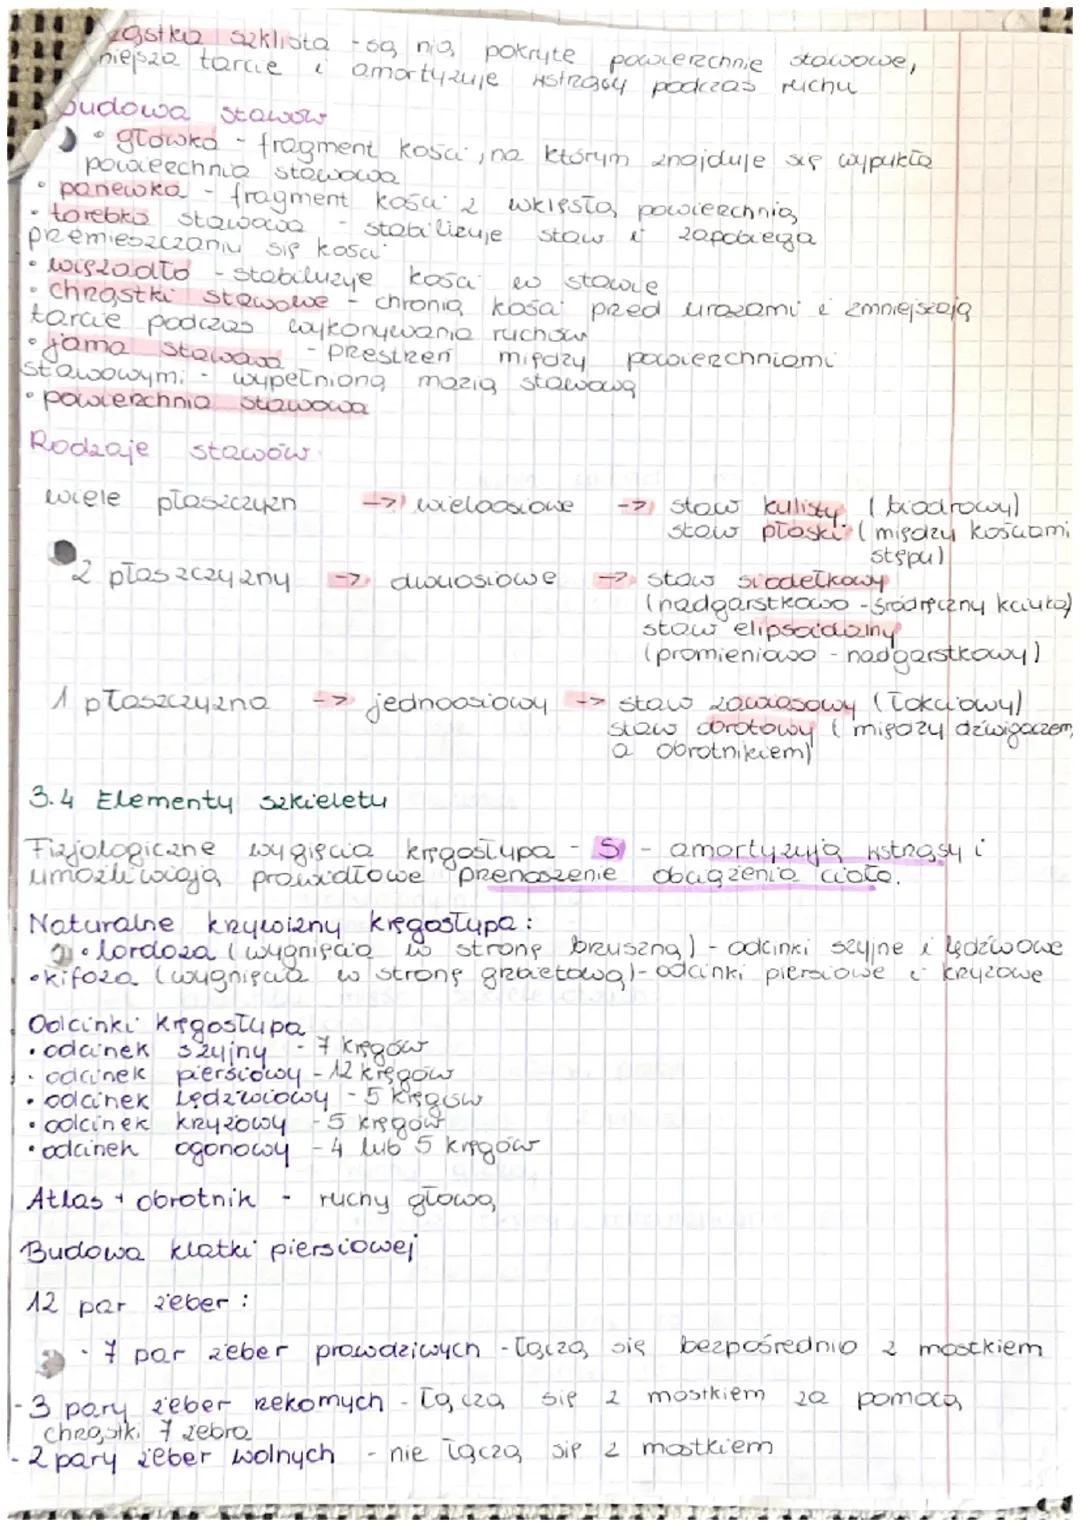 szklista - są nią pokryte powierzchnie stawowe,
tarcie i amortyzuje wstrząsy podczas ruchu
Budowa stawów
• główka - fragment kości, na którym znajduje się wypukła
powierzchnia stawowa
• panewka - fragment kości z wklęsłą powierzchnią
• torebka stawowa - stabilizuje staw i zapobiega
przemieszczaniu się kości
• więzadło - stabilizuje kości w stawie
• chrząstki stawowe - chronią kości przed urazami i zmniejszają
tarcie podczas wykonywania ruchów
• jama stawowa - przestrzeń między powierzchniami
stawowymi - wypełnioną mazią stawową
• powierzchnia stawowa
Rodzaje stawów
wiele płaszczyzn -> wieloosiowe -> staw kulisty (biodrowy)
staw płaski (między kościami
stępu)
2 płaszczyzny -> dwuosiowe -> staw siodełkowy
(nadgarstkowo - śródręczny kciuka)
staw elipsoidalny
(promieniowo - nadgarstkowy)
1 płaszczyzna -> jednoosiowy -> staw zawiasowy (łokciowy)
staw obrotowy (między dźwigaczem,
a obrotnikiem)
3.4 Elementy szkieletu
Fizjologiczne wygięcia kręgosłupa - S - amortyzują wstrząsy i
umożliwiają prawidłowe przenoszenie obciążenia ciała.
Naturalne krzywizny kręgosłupa:
• lordoza (wygnięcia w stronę brzuszną) - odcinki szyjne i lędźwowe
• kifoza (wygnięcia w stronę grzbietową) - odcinki piersiowe i krzyżowe
Odcinki kręgosłupa
• odcinek szyjny - 7 kręgów
• odcinek piersiowy - 12 kręgów
• odcinek lędźwiowy - 5 kręgów
• odcinek krzyżowy - 5 kręgów
• odcinek ogonowy - 4 lub 5 kręgów
Atlas + obrotnik - ruchy głową
Budowa klatki piersiowej
12 par żeber:
- 7 par żeber prawdziwych - łączą się bezpośrednio z mostkiem
- 3 pary żeber rzekomych - łączą się z mostkiem za pomocą
chrząstki 7 żebra
- 2 pary żeber wolnych - nie łączą się z mostkiem